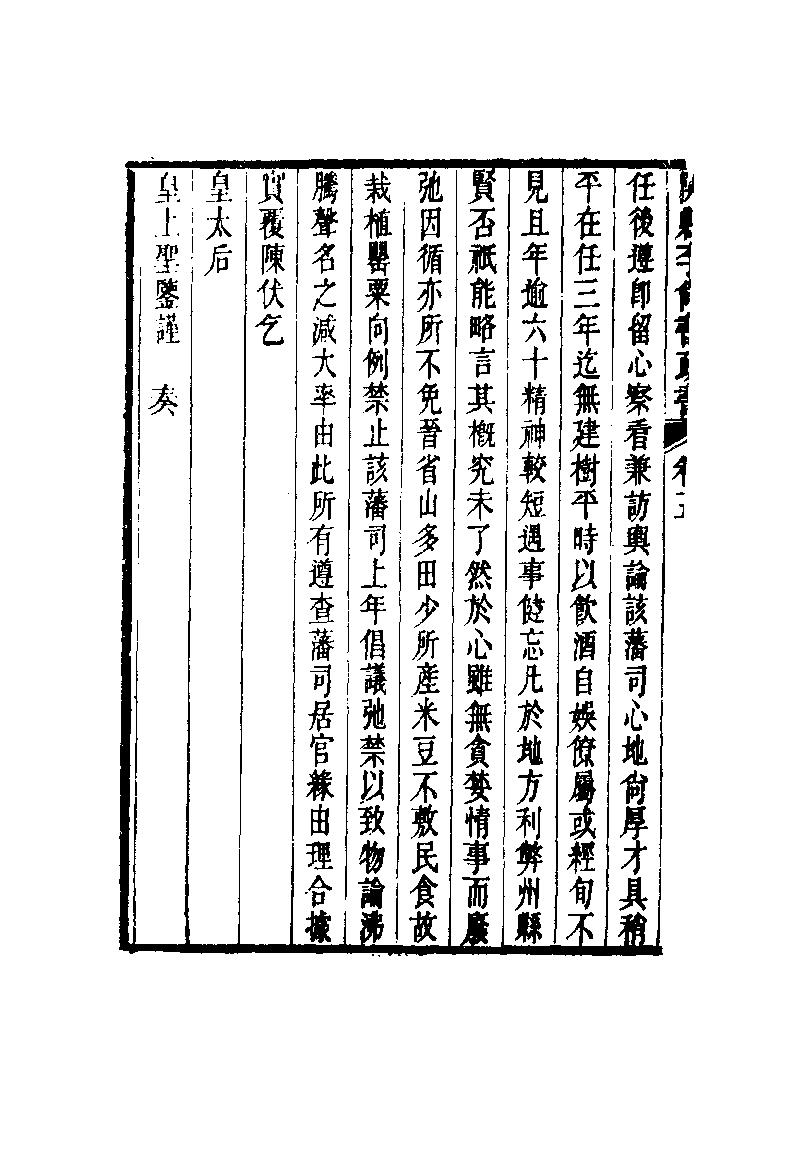 任後遵卽留心察看兼訪輿論該藩司心地尙厚才具稍
平在任三年迄無建樹平時以飮酒自娛僚屬或經旬不
見且年逾六十精神較短遇事健忘凡於地方利弊州縣
賢否祇能略言其槪究未了然於心雖無貪婪情事而廢
弛因循亦所不免晉省山多田少所產米豆不敷民食故
栽植罌粟向例禁止該藩司上年倡議弛禁以致物論沸
騰聲名之減大率由此所有遵查藩司居官緣由理合據
實覆陳伏乞
皇太后
皇上聖鑒謹　奏